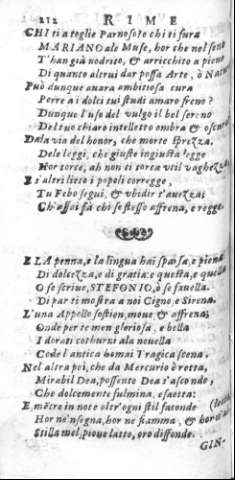 212 RIME
CHI ti a toglie Parnoso? e chi ti fura
MARIANO a le Muse, hor che nel seno
T'han già nodrito, & arricchito a pieno
Di quanto altrui dar possa Arte, ò
Può dunque auara ambitiosa cura
Porre a i dolci tui studi amaro freno?
Dunque l'uso del vulgo il bel sereno
Del tuo chiaro intelletto ombra & oscura
Da la via del honor, che morte sprezza,
De le leggi, che giusto ingiusta legge
Hor torce, ah non ti torca util vaghezza
E s'altri lieto i popoli corregge,
Tu Febo segui, & ubidir t'auezza;
Ch'assai fà chi se stesso affrena, e regge
E LA penna, e la lingua hai sparsa, e piena
Di dolcezza, e di gratia: e questa, e quella
O se scriue, STEFONIO, ò se fauella.
Di par ti mostra a noi Cigno, e Sirena.
L'una Apollo sostien, moue & affrena;
Onde per te men gloriosa, e bella
I dorati cothurni a la nouella
Cede l'antica homai Tragica scena.
Nel altra poi, che da Mercurio è retta,
Mirabil Dea, possente Dea s'asconde,
Che dolcemente fulmina, e saetta:
E, mentre in note oltr'ogni stil faconde
Hor ne'nsegna, hor ne fiamma, &
Stilla mel, pioue latto, oro diffonde.
GIN-